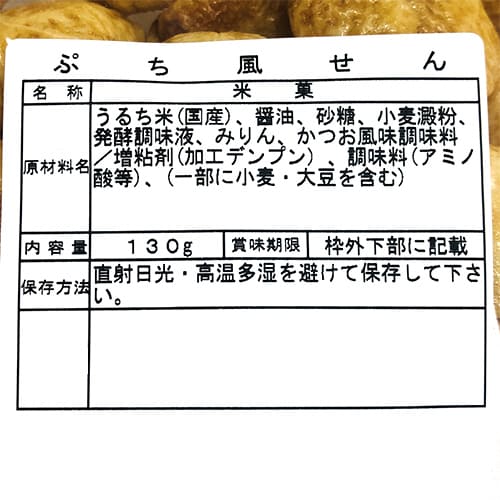 ぷち風せん
名称 米菓
原材料名 うるち米(国産)、醤油、砂糖、小麦澱粉、
発酵調味液、みりん、かつお風味調味料
／増粘剤(加工デンプン)、調味料(アミノ
酸等)、(一部に小麦・大豆を含む)
内容量 130g 賞味期限 枠外下部に記載
保存方法 直射日光・高温多湿を避けて保存して下さ
い。